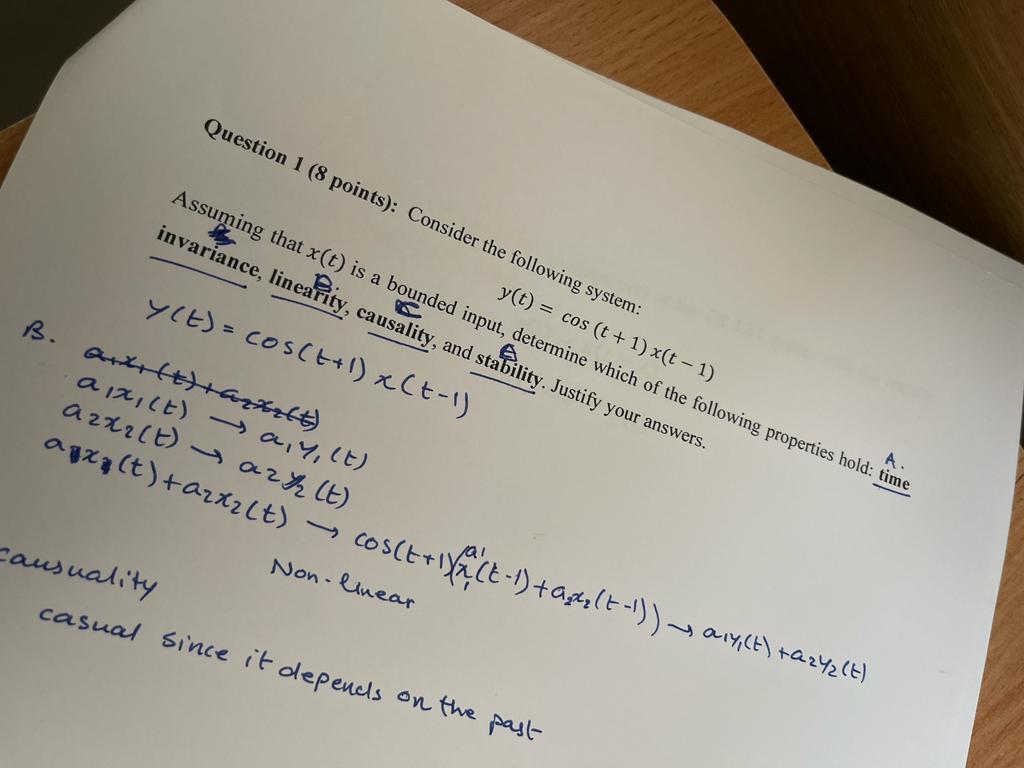 Question 1 (8 points): Consider the following system:
y(t) = cos (t + 1) x(t − 1)
Assuming that x(t) is a bounded input, determine which of the following properties hold: time
A.
invariance, linearity, causality, and stability. Justify your answers.
B.
C
y(t) = cos(t+1) x(t-1)
B.
a1x1(t)+a2x2(t)
a1x1(t) → a1y1(t)
a2x2(t) → a2y2(t)
a1x1(t)+a2x2(t) → cos(t+1)(a1x1(t-1)+a2x2(t-1)) → a1y1(t)+a2y2(t)
Non-linear
causuality
casual since it depends on the past